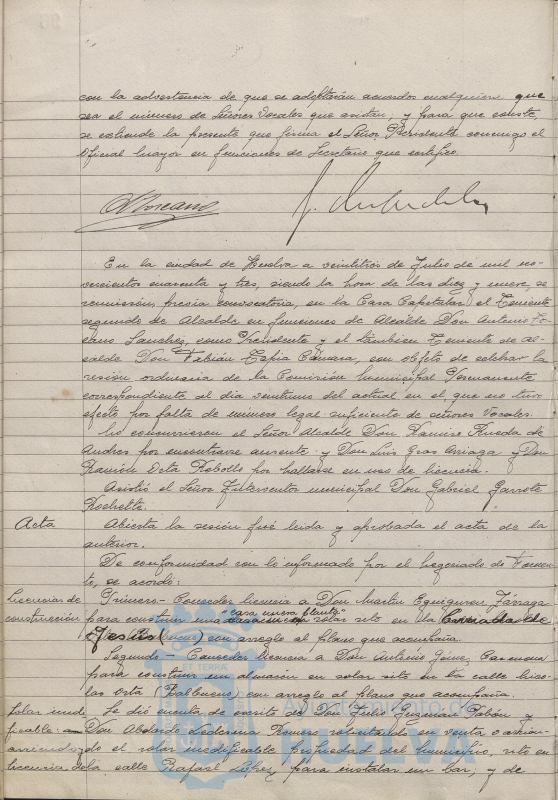 con la advertencia de que se adoptarán acuerdos cualquiera que
sea el número de Señores Vocales que asistan, y para que conste,
se extiende la presente que firma el Señor Presidente conmigo el
Oficial Mayor en funciones de Secretario que certifico.
En la ciudad de Huelva a veintitrés de Julio de mil no-
vecientos cuarenta y tres, siendo la hora de las diez y nueve, se
reunieron, previa convocatoria, en la Casa Capitular el Teniente
segundo de Alcalde en funciones de Alcalde Don Antonio
Sanchez, como Presidente y el también Teniente de Al-
calde Don Fabián Tapia Cámara, con objeto de celebrar la
sesión ordinaria de la Comisión Municipal Permanente
correspondiente al dia veintiuno del actual en el que no tuvo
efecto por falta de número legal suficiente de señores Vocales.
No concurrieron el Señor Alcalde Don Ramiro Rueda de
Andres por encontrarse ausente y Don Luis Gras Arriaga y Don
Ramón Rebollo por hallarse en uso de licencia.
Asistió el Señor Interventor municipal Don Gabriel Garrote
Acta
Abierta la sesión fué leida y aprobada el acta de la
anterior.
De conformidad con lo informado por el Negociado de Fomen-
to, se acordó:
Licencias de
construcción
Primero - Conceder licencia a Don Martin Eguiguren Zárraga
"casa nueva planta"
para construir una en solar sito en la
Jesús con arreglo al plano que acompaña.
Segundo - Conceder licencia a Don Antonio Gómez Casanova
para construir un almacén en solar sito en la calle Nico-
las Orta (Balbueno) con arreglo al plano que acompaña.
Solar inedi-
ficable
arriendo
licencia
Se dió cuenta de escrito de Don Julio Guzman Pabón y
Don Abelardo Ledesma Romero solicitando en venta o arrien-
do el solar inedificable propiedad del Municipio, sito en
la calle Rafael López, para instalar un bar, y de
ET TERRA
Ayuntamiento de
HUELVA